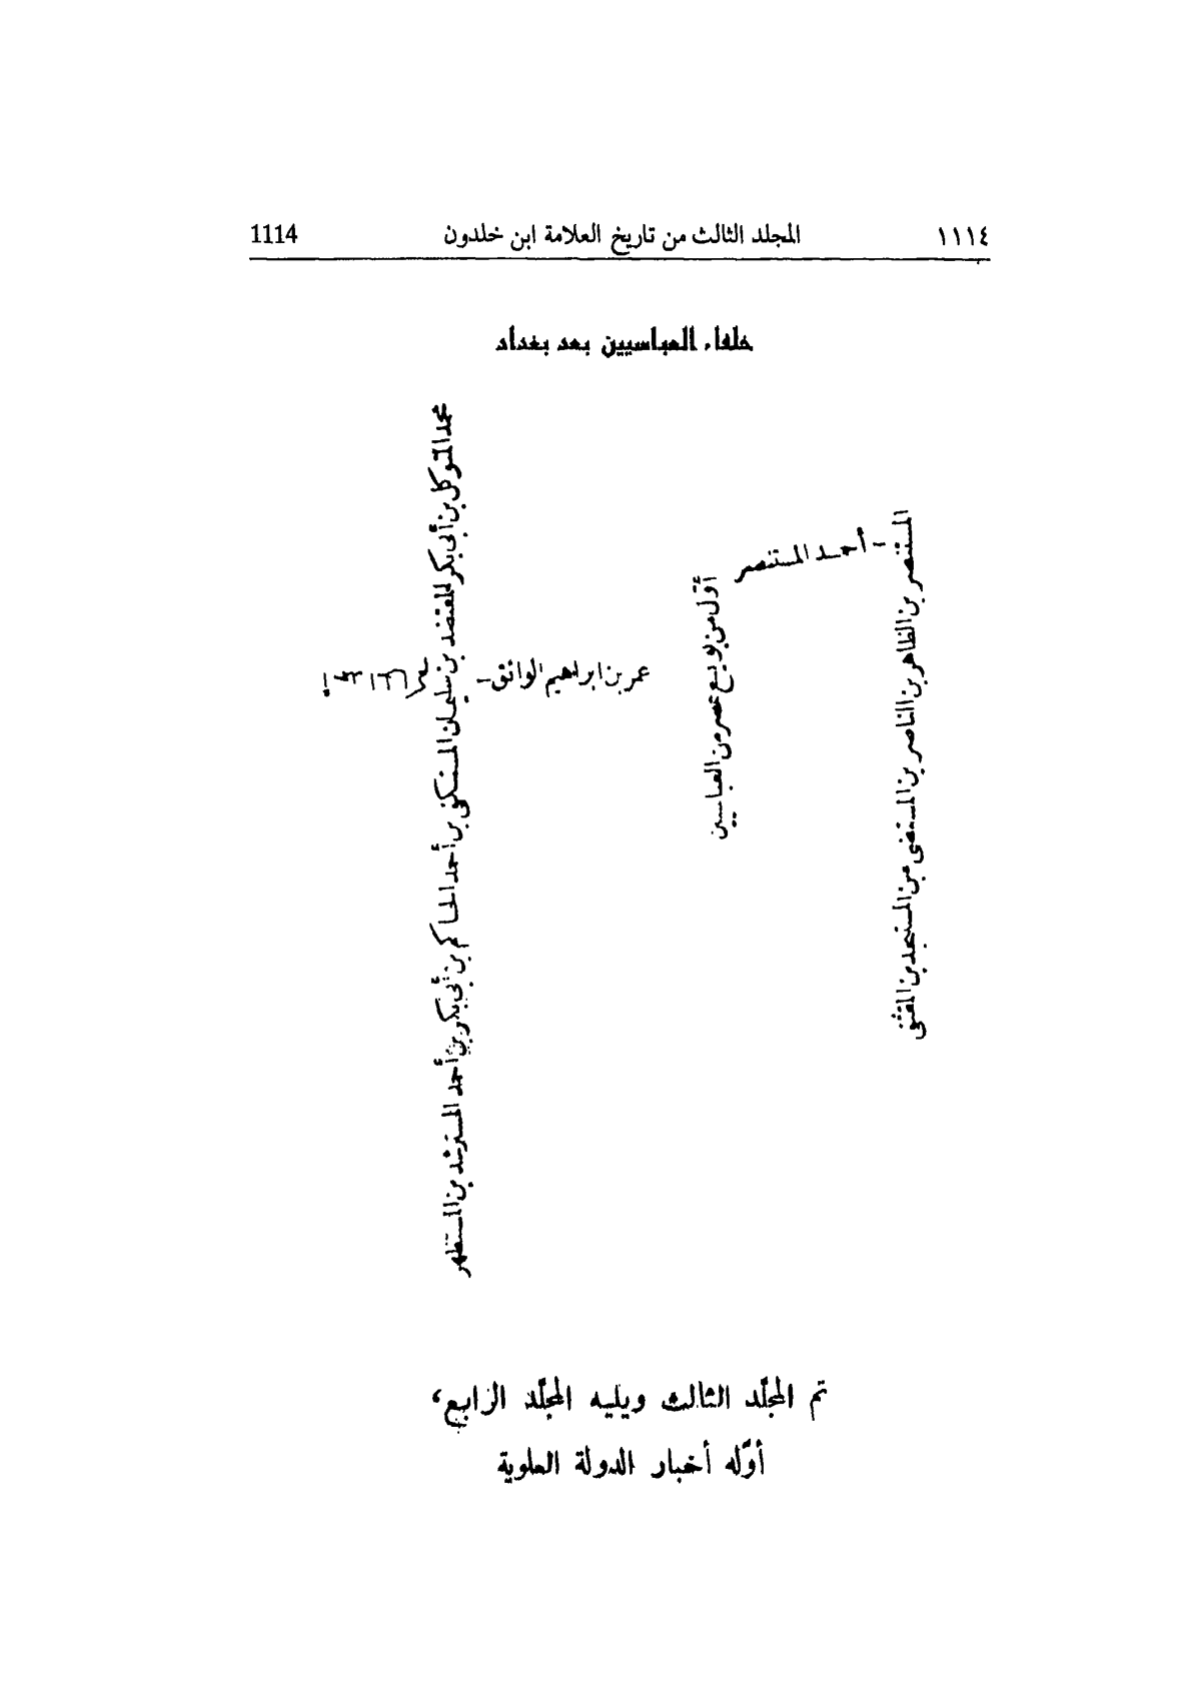 ١١١٤ المجلد الثالث من تاريخ العلامة ابن خلدون 1114
خلفاء العباسيين بعد بغداد
المستنصر بن الظاهر بن الناصر بن المستضىء بن المستنجد بن المقتفى
- أحمد المستنصر
أوّل من بويع بمصر من العباسيين
عمر بن ابراهيم الواثق -
محمد المتوكل بن أبى بكر المعتضد بن سليمان المستكفى بن أحمد الحاكم بن أبى بكر بن أحمد المسترشد بن المستظهر
تم المجلّد الثالث ويليه المجلّد الرابع،
أوّله أخبار الدولة العلوية